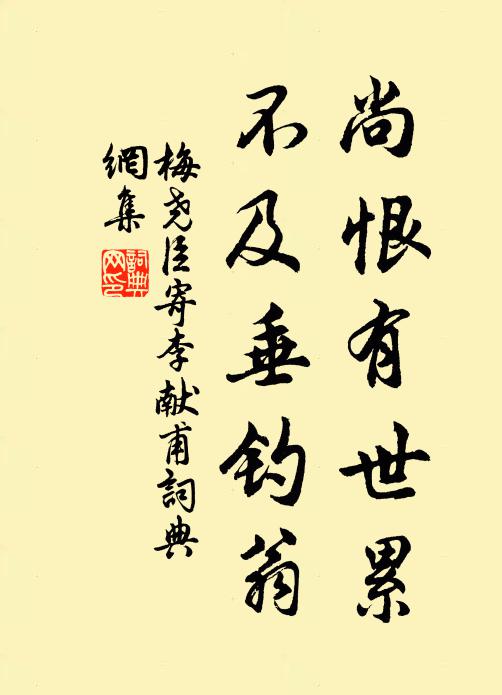 尚恨有世累
不及垂钓翁
梅尧臣寄李献甫詞典
網集
詞典
网印